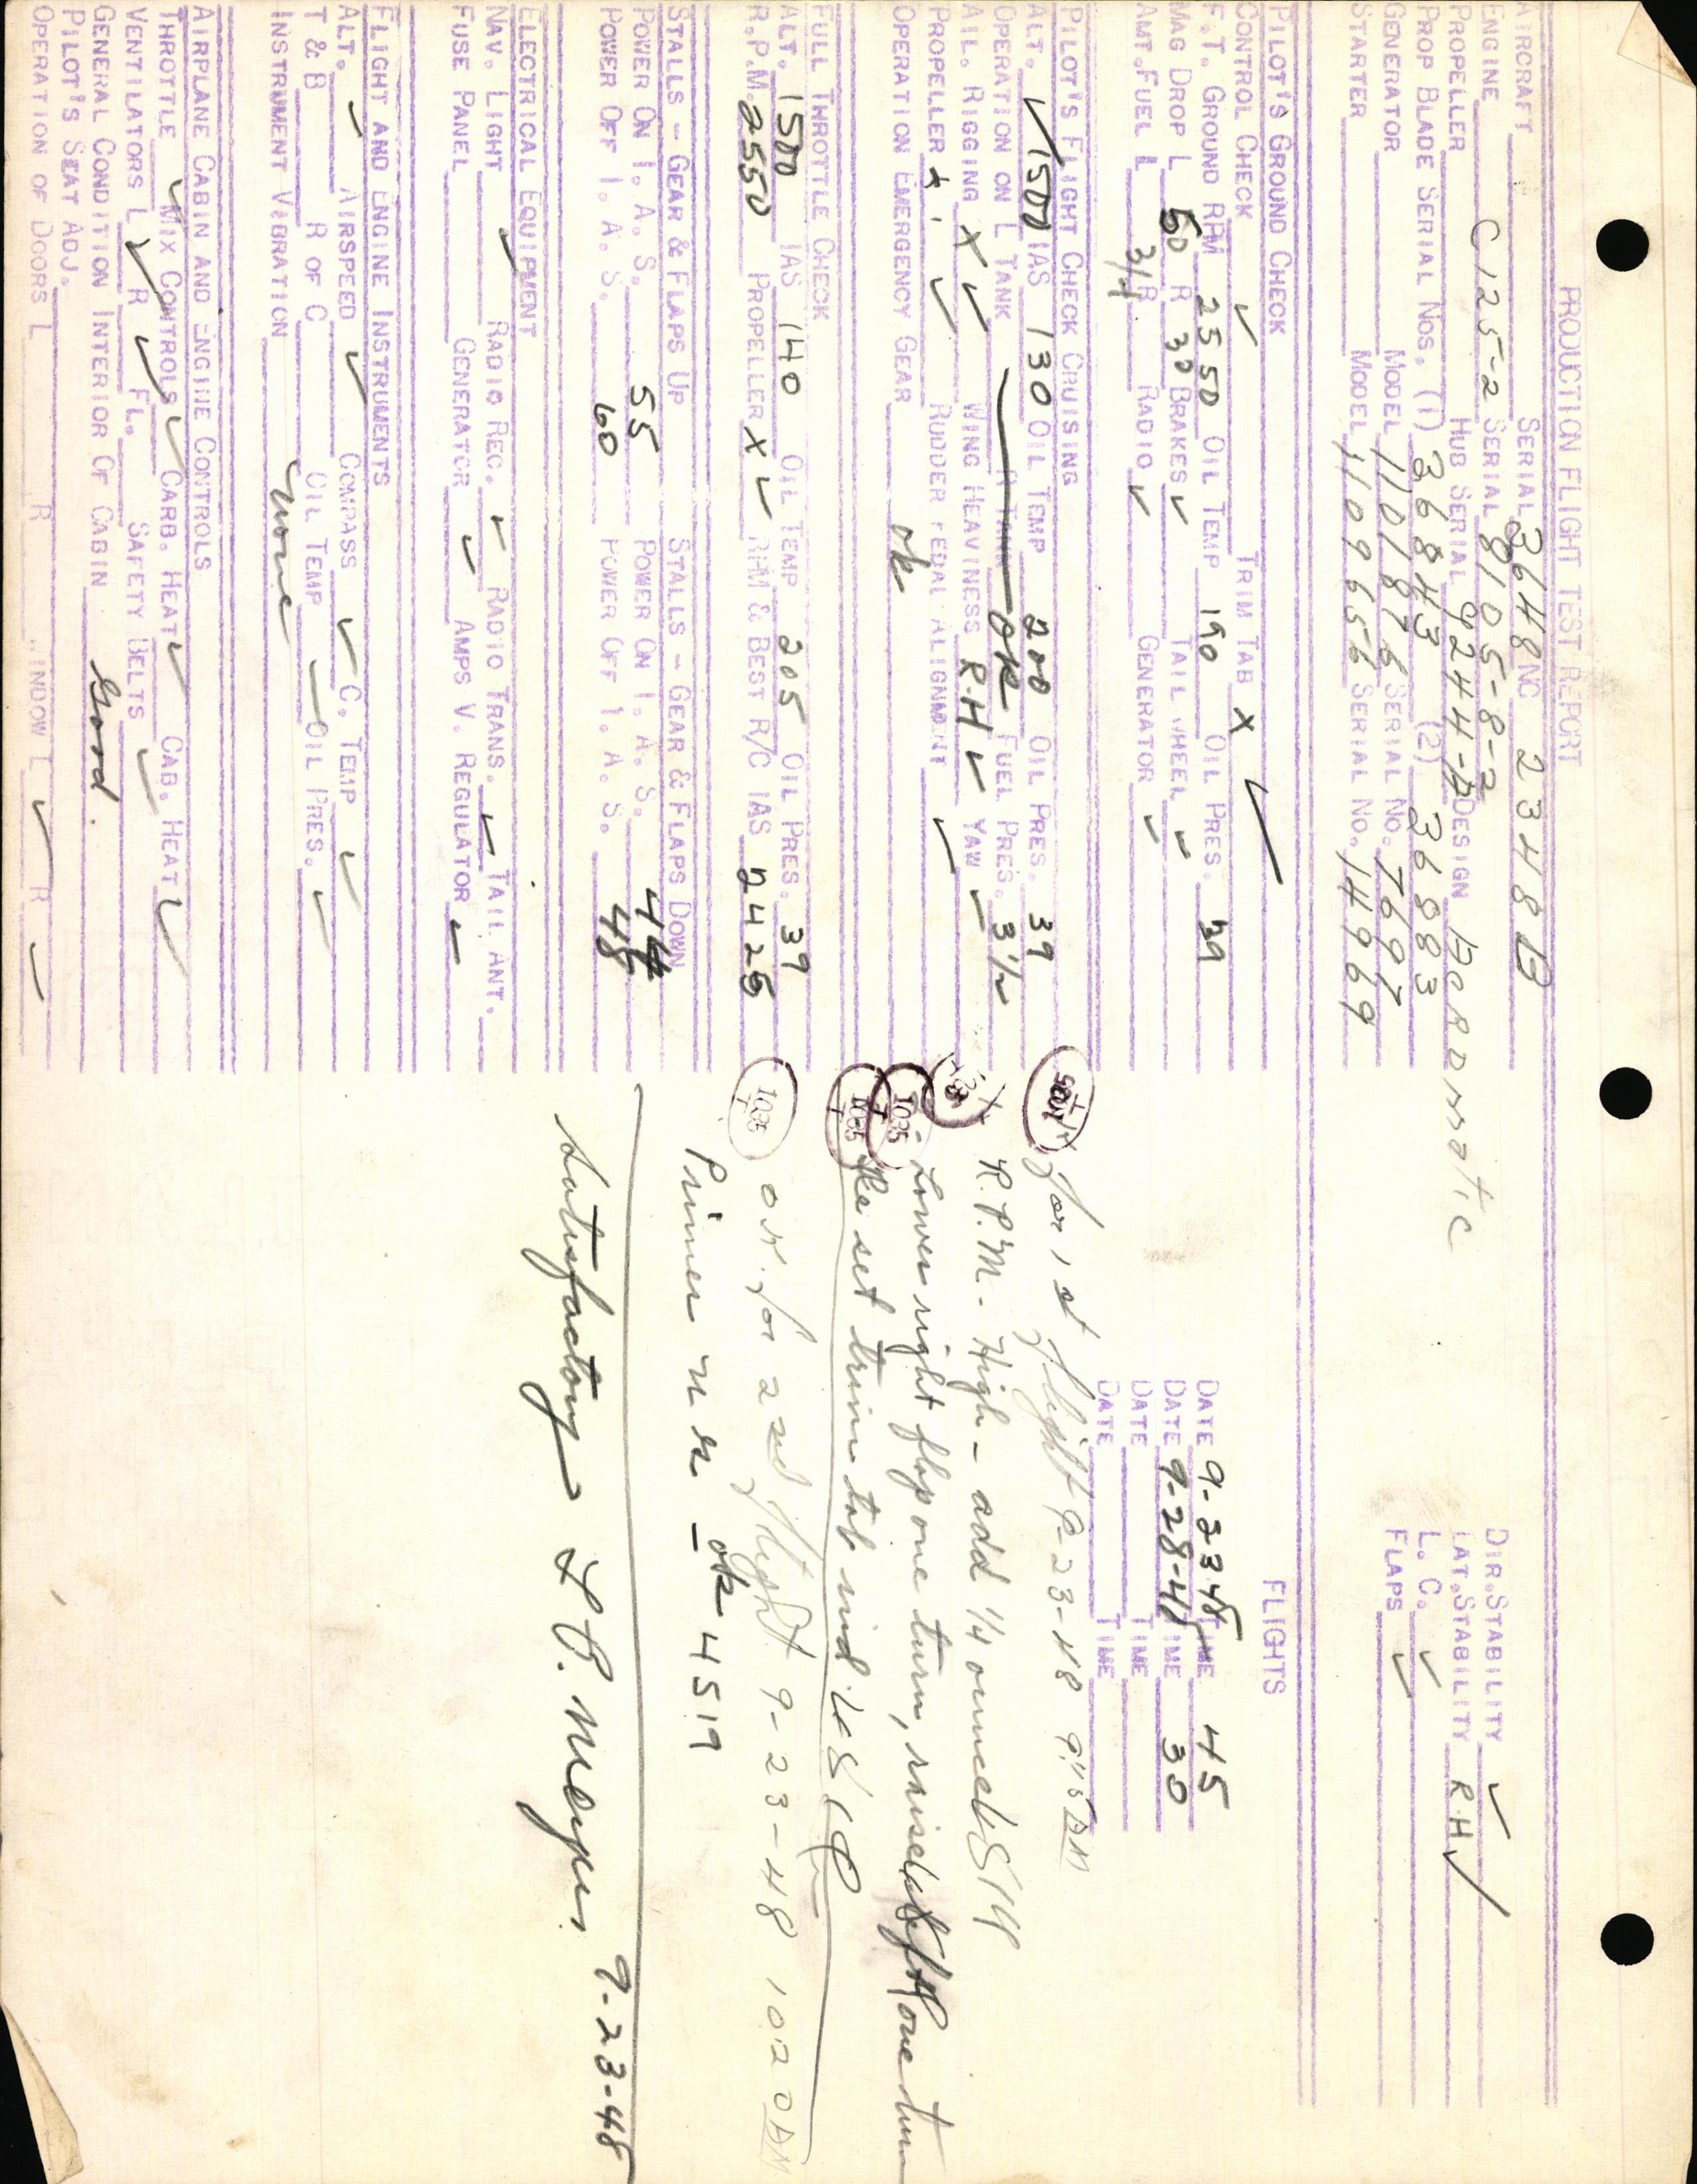 PRODUCTION FLIGHT TEST REPORT
AIRCRAFT SERIAL 3648 NC 2348B
ENGINE C125-2 SERIAL 8105-8-2 DIR.STABILITY ✓
PROPELLER HUB SERIAL 9244-A DESIGN Koppomatic LAT.STABILITY R.H ✓
PROP BLADE SERIAL NOS. (1) 36843 (2) 36883 L. C. ✓
GENERATOR MODEL 1101876 SERIAL NO. 7697 FLAPS ✓
STARTER MODEL 1109656 SERIAL NO. 14969
PILOT'S GROUND CHECK FLIGHTS
CONTROL CHECK ✓ TRIM TAB X ✓
F.T. GROUND RPM 2550 OIL TEMP 190 OIL PRES. 39 DATE 9-23-48 TIME 45
MAG DROP L 50 R 30 BRAKES ✓ TAIL WHEEL ✓ DATE 9-28-48 TIME 30
AMT.FUEL L 3/4 R RADIO ✓ GENERATOR ✓ DATE TIME
DATE TIME
PILOT'S FLIGHT CHECK CRUISING
ALT. ✓1500 IAS 130 OIL TEMP 200 OIL PRES. 39 for 1st flight 9-23-48 9:15 AM
OPERATION ON L TANK R TANK OK FUEL PRES. 3½
AIL. RIGGING X ✓ WING HEAVINESS R.H ✓ YAW ✓ R.P.M. - High - add ¼ ounce
PROPELLER ✓ RUDDER PEDAL ALIGNMENT ✓ Lower right flap one turn, raise left one turn
OPERATION EMERGENCY GEAR ok Re set trim tab ind.
FULL THROTTLE CHECK
ALT. 1500 IAS 140 OIL TEMP 205 OIL PRES. 39
R.P.M. 2550 PROPELLER X ✓ RPM & BEST R/C IAS 2425 1035 OK. for 2nd flight 9-23-48 1020 AM
STALLS - GEAR & FLAPS UP STALLS - GEAR & FLAPS DOWN Primer - ok 4519
POWER ON I. A. S. 55 POWER ON I. A. S. 44
POWER OFF I. A. S. 60 POWER OFF I. A. S. 48 Satisfactory 9-23-48
ELECTRICAL EQUIPMENT
NAV. LIGHT ✓ RADIO REC. ✓ RADIO TRANS. ✓ TAIL ANT.
FUSE PANEL GENERATOR ✓ AMPS V. REGULATOR ✓
FLIGHT AND ENGINE INSTRUMENTS
ALT. ✓ AIRSPEED ✓ COMPASS ✓ C. TEMP ✓
T & B R OF C OIL TEMP ✓ OIL PRES. ✓
INSTRUMENT VIBRATION None
AIRPLANE CABIN AND ENGINE CONTROLS
THROTTLE ✓ MIX CONTROLS ✓ CARB. HEAT ✓ CAB. HEAT ✓
VENTILATORS L ✓ R ✓ FL. SAFETY BELTS ✓
GENERAL CONDITION INTERIOR OF CABIN Good.
PILOT'S SEAT ADJ.
OPERATION OF DOORS L R WINDOW L ✓ R ✓